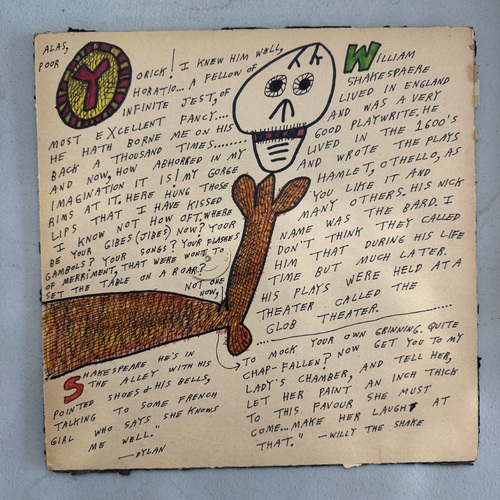 ALAS,
POOR YORICK! I KNEW HIM WELL,
HORATIO... A FELLOW OF
INFINITE JEST, OF
MOST EXCELLENT FANCY....
HE HATH BORNE ME ON HIS
BACK A THOUSAND TIMES........
AND NOW, HOW ABHORRED IN MY
IMAGINATION IT IS! MY GORGE
RIMS AT IT. HERE HUNG THOSE
LIPS THAT I HAVE KISSED
I KNOW NOT HOW OFT. WHERE
BE YOUR GIBES (JIBES) NOW? YOUR
GAMBOLS? YOUR SONGS? YOUR FLASHES
OF MERRIMENT, THAT WERE WONT TO
SET THE TABLE ON A ROAR?
NOT ONE
NOW,
TO MOCK YOUR OWN GRINNING. QUITE
CHAP-FALLEN? NOW GET YOU TO MY
LADY'S CHAMBER, AND TELL HER,
LET HER PAINT AN INCH THICK
TO THIS FAVOUR SHE MUST
COME... MAKE HER LAUGH AT
THAT." —WILLY THE SHAKE
WILLIAM
SHAKESPAERE
LIVED IN ENGLAND
AND WAS A VERY
GOOD PLAYWRITE. HE
LIVED IN THE 1600'S
AND WROTE THE PLAYS
HAMLET, OTHELLO, AS
YOU LIKE IT AND
MANY OTHERS. HIS NICK
NAME WAS THE BARD. I
DON'T THINK THEY CALLED
HIM THAT DURING HIS LIFE
TIME BUT MUCH LATER.
HIS PLAYS WERE HELD AT A
THEATER CALLED THE
GLOB THEATER.
SHAKESPEARE HE'S IN
THE ALLEY WITH HIS
POINTED SHOES & HIS BELLS,
TALKING TO SOME FRENCH
GIRL WHO SAYS SHE KNOWS
ME WELL."
—DYLAN